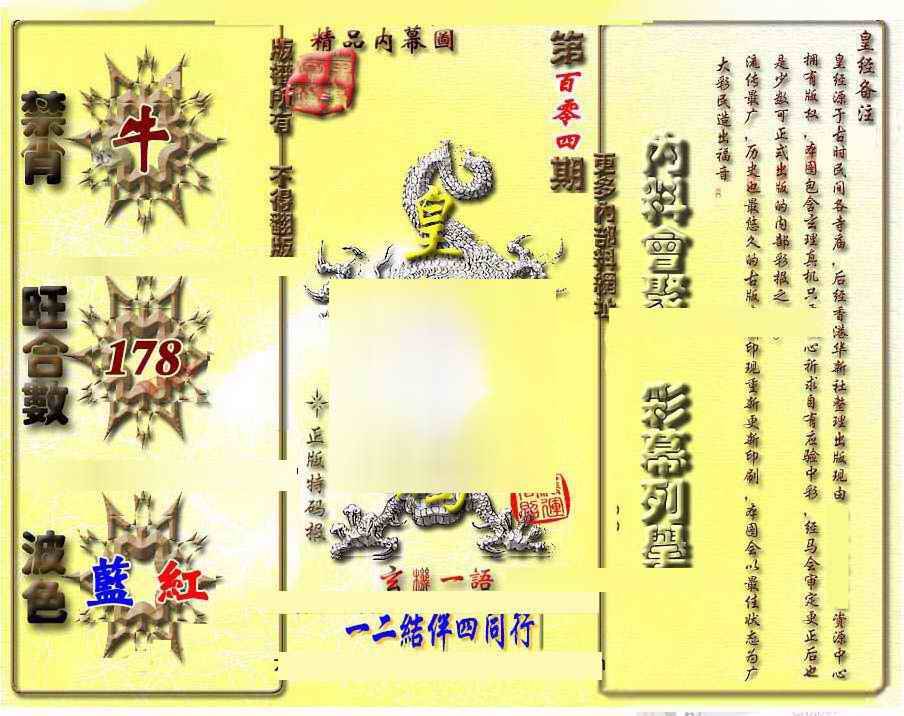 精品內幕圖
第百零四期
版權所有 不得翻版
更多內部料網址
禁肖
牛
旺合數
178
波色
藍 紅
皇
正版特码报
玄機一語
一二結伴四同行
皇经备注
皇经源于古时民间各寺庙，后经香港华新社整理出版现由
资源中心
拥有版权，本图包含玄理真机只
心祈求自有应验中彩，经马会审定更正后也
是少数可正式出版的内部彩报之
流传最广，历史也最悠久的古版
印现重新更新印刷，本图会以最佳状态为广
大彩民造出福音
內料會聚
彩幕列學